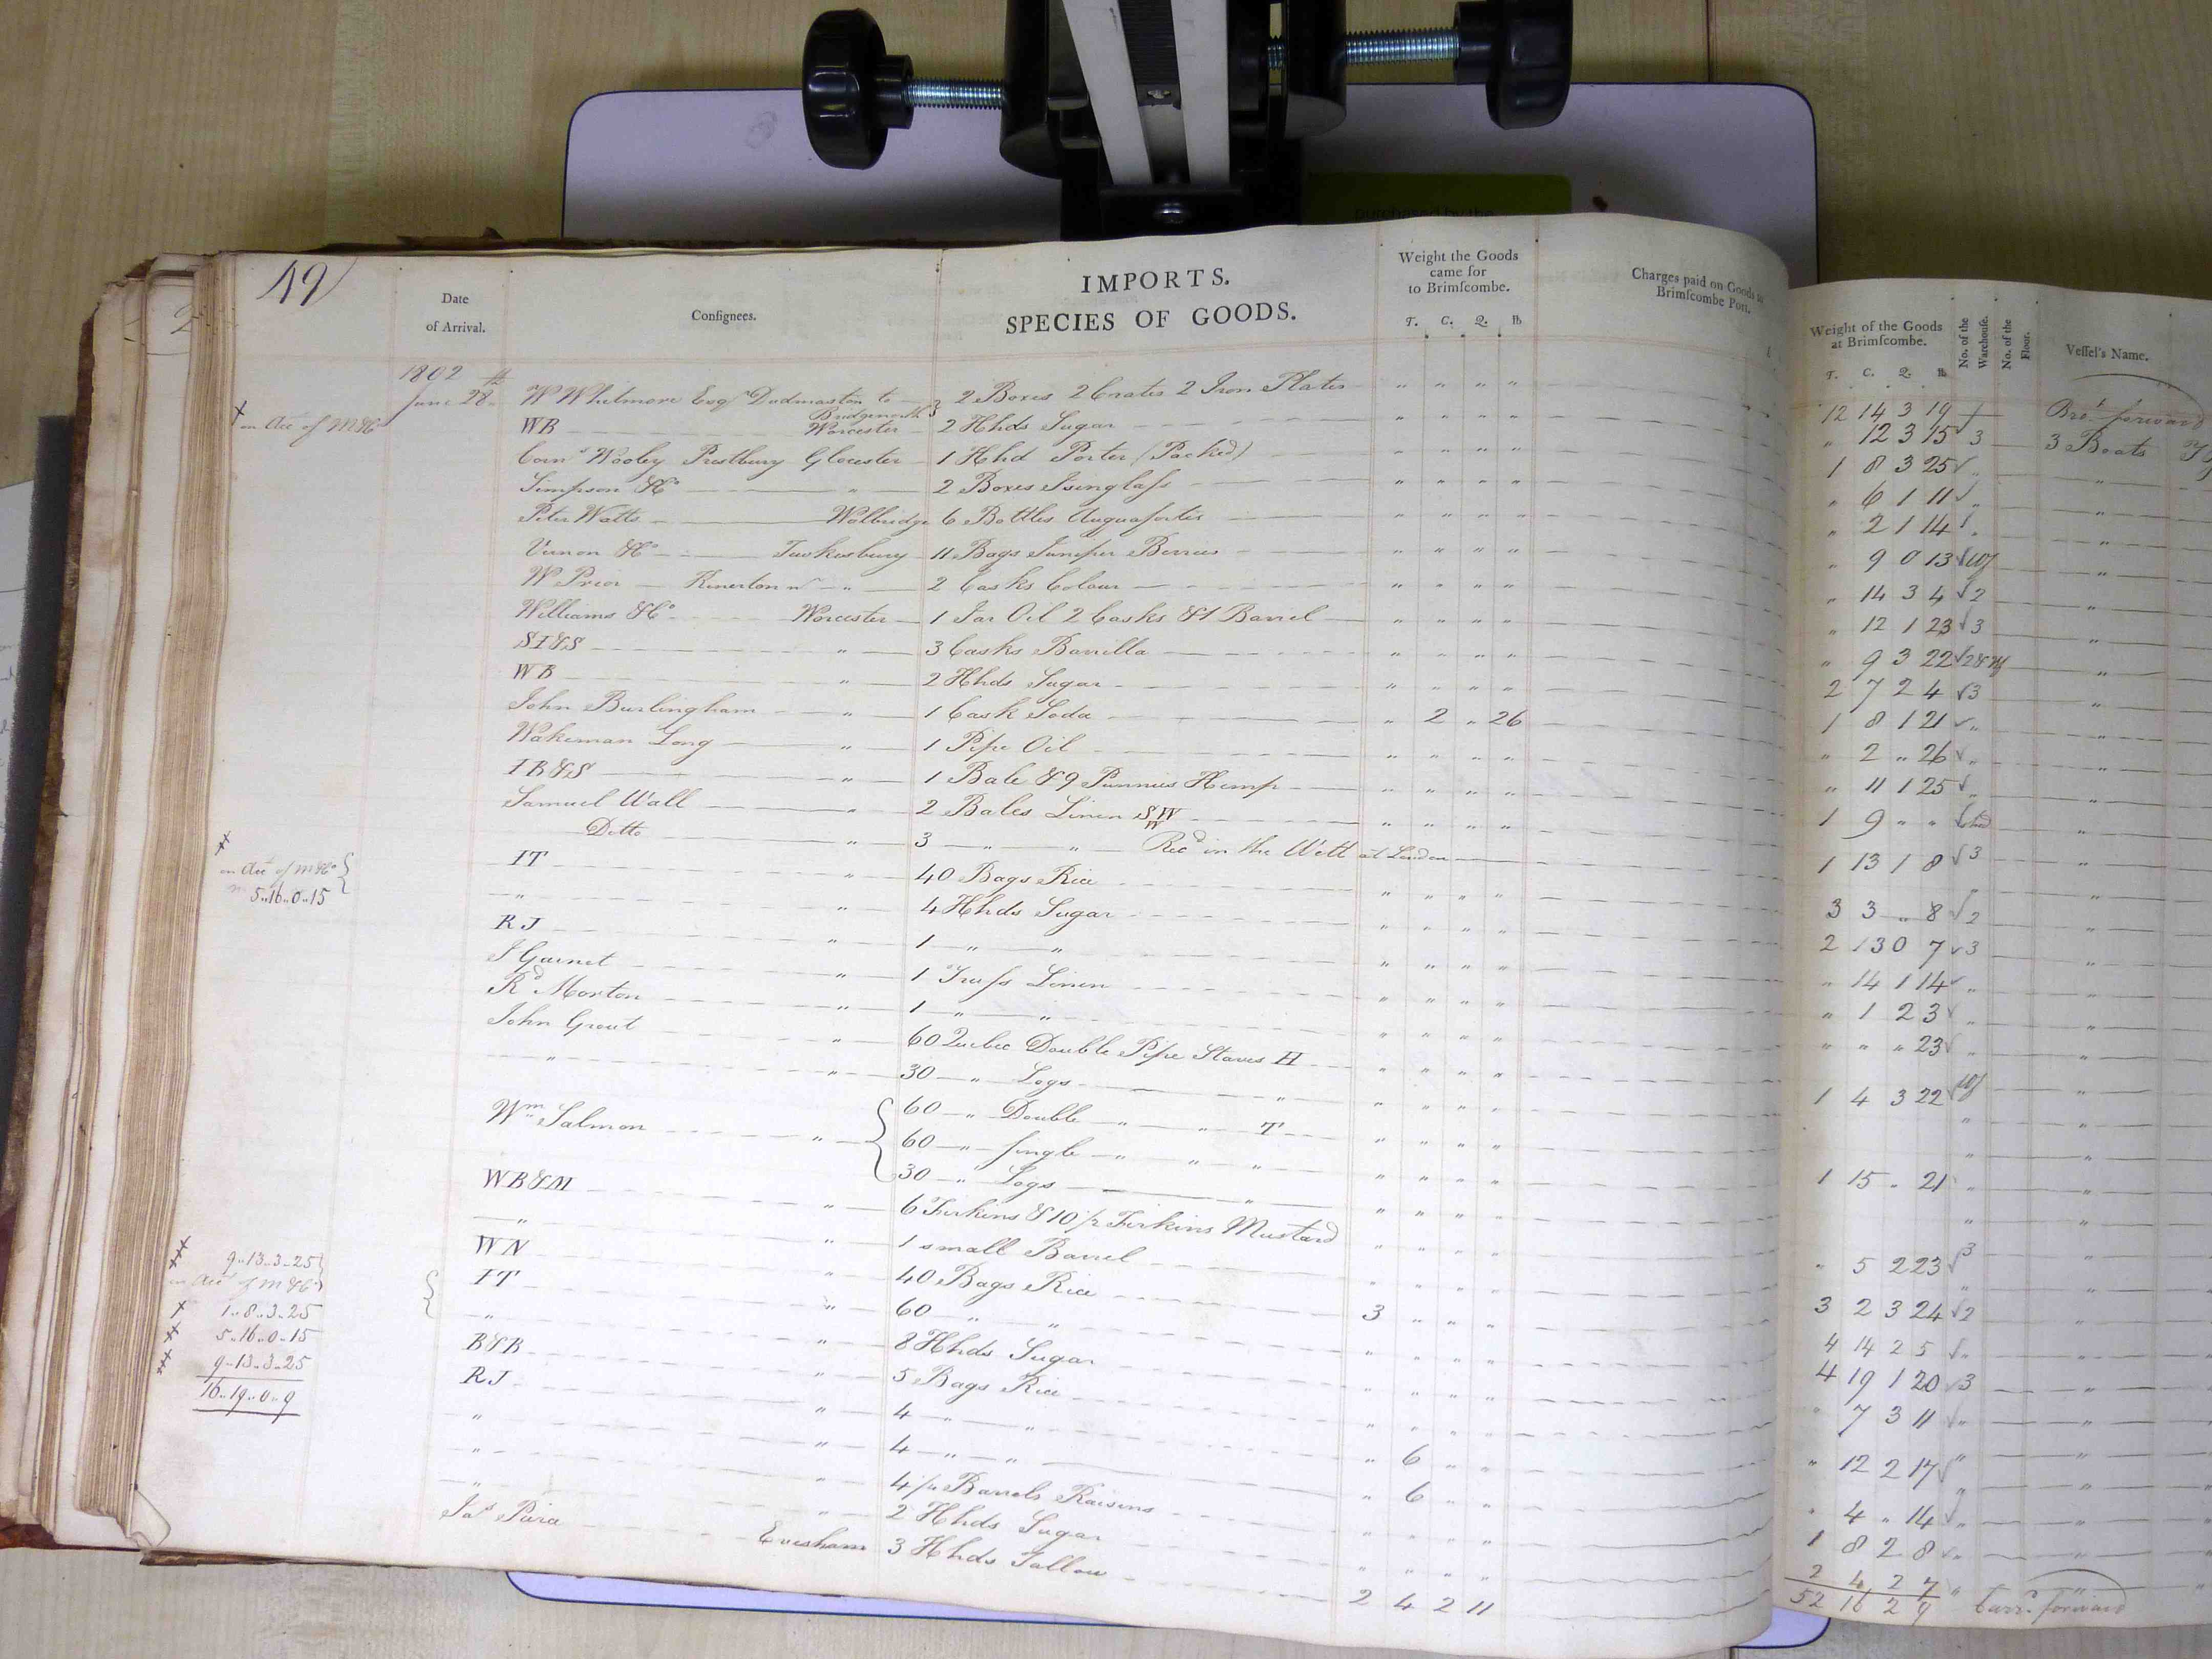 49
Date
of Arrival.
Consignees.
IMPORTS.
SPECIES OF GOODS.
Weight the Goods
came for
to Brimſcombe.
T. C. Q. lb
Charges paid on Goods
Brimſcombe Port.
Weight of the Goods
at Brimſcombe.
T. C. Q. lb
No. of the Warehouſe.
No. of the Floor.
Veſſel's Name.
1802
12 14 3 19 Bro.t forward
June 28th W Whitmore Esqr Dudmaston to Bridgenorth 2 Boxes 2 Crates 2 Iron Plates " " " " " 12 3 15 3 3 Boats
on Acc of M &Co WB Worcester 2 Hhds Sugar " " " " 1 8 3 25 " "
Corn.s Wooley Prestbury Glocester 1 Hhd Porter (Packed) " " " " " 6 1 11 " "
Simpson &Co " 2 Boxes Isinglaſs " " " " " 2 1 14 " "
Peter Watts Walbridge 6 Bottles Aquafortis " " " " " 9 0 13 "
Vernon &Co Tewkesbury 11 Bags Juniper Berries " " " " " 14 3 4 2 "
W Prior Kinerton " 2 Casks Colour " " " " " 12 1 23 3 "
Williams &Co Worcester 1 Jar Oil 2 Casks &1 Barrel " " " " " 9 3 22 "
SI&S " 3 Casks Barilla " " " " 2 7 2 4 3 "
WB " 2 Hhds Sugar " " " " 1 8 1 21 " "
John Burlingham " 1 Cask Soda " 2 " 26 " 2 " 26 " "
Wakeman Long " 1 Pipe Oil " " " " " 11 1 25 " "
IB&S " 1 Bale &9 Punnies Hemp " " " " 1 9 " " "
Samuel Wall " 2 Bales Linen SW W " " " " 1 13 1 8 3 "
Ditto " 3 " " Recd in the Wett at London
on Acc of M &Co
5..16..0..15
IT " 40 Bags Rice " " " " 3 3 " 8 2 "
" " 4 Hhds Sugar " " " " 2 13 0 7 3 "
RJ " 1 " " " " " " " 14 1 14 " "
J Garnet " 1 Truſs Linen " " " " " 1 2 3 " "
Rd Morton " 1 " " " " " " " " " 23 " "
John Grout " 60 Quebec Double Pipe Staves H " " " " 1 4 3 22 "
" " 30 " Logs " " " " " "
Wm Salmon " 60 " Double " " T " " " " "
60 " Single " " " " " " " 1 15 " 21 " "
30 " Logs " " " " " "
WB&M " 6 Firkins &10 1/2 Firkins Mustard " " " " " 5 2 23 3 "
" " 1 small Barrel " " " " "
WN " 40 Bags Rice " " " " 3 2 3 24 2 "
IT " 60 " " 3 " " " 4 14 2 5 " "
B&B " 8 Hhds Sugar " " " " 4 19 1 20 3 "
RJ " 5 Bags Rice " " " " " 7 3 11 " "
" " 4 " " " 6 " " " 12 2 17 " "
" " 4 " " " 6 " "
" " 4 1/4 Barrels Raisins " " " " " 4 " 14 " "
2 Hhds Sugar " " " " 1 8 2 8 " "
Jas Piera Evesham 3 Hhds Tallow 2 4 2 11 2 4 2 7 " "
52 16 2 9 Carrd forward
9..13..3..25
on Acc of M &Co
1..8..3..25
5..16..0..15
9..13..3..25
16..19..0..9